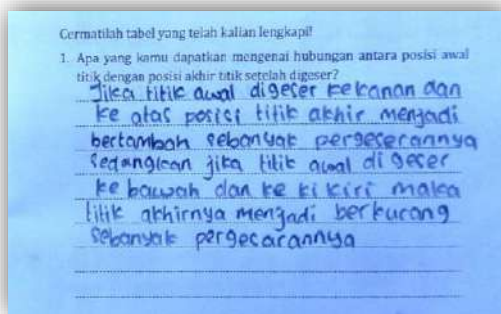 Cermatilah tabel yang telah kalian lengkapi!
1. Apa yang kamu dapatkan mengenai hubungan antara posisi awal
titik dengan posisi akhir titik setelah digeser?
Jika titik awal digeser kekanan dan
ke atas posisi titik akhir menjadi
bertambah sebanyak pergeserannya
sedangkan jika titik awal di geser
ke bawah dan ke ki kiri maka
titik akhirnya menjadi berkurang
sebanyak pergesarannya